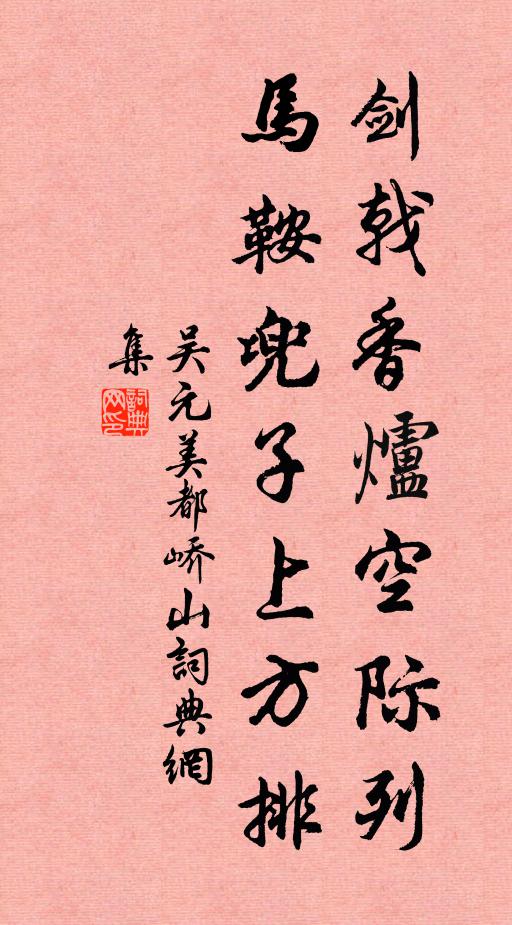 剑戟香爐空际列
馬鞍兜子上方排
吴元美都峤山詞典網
集
詞典网印